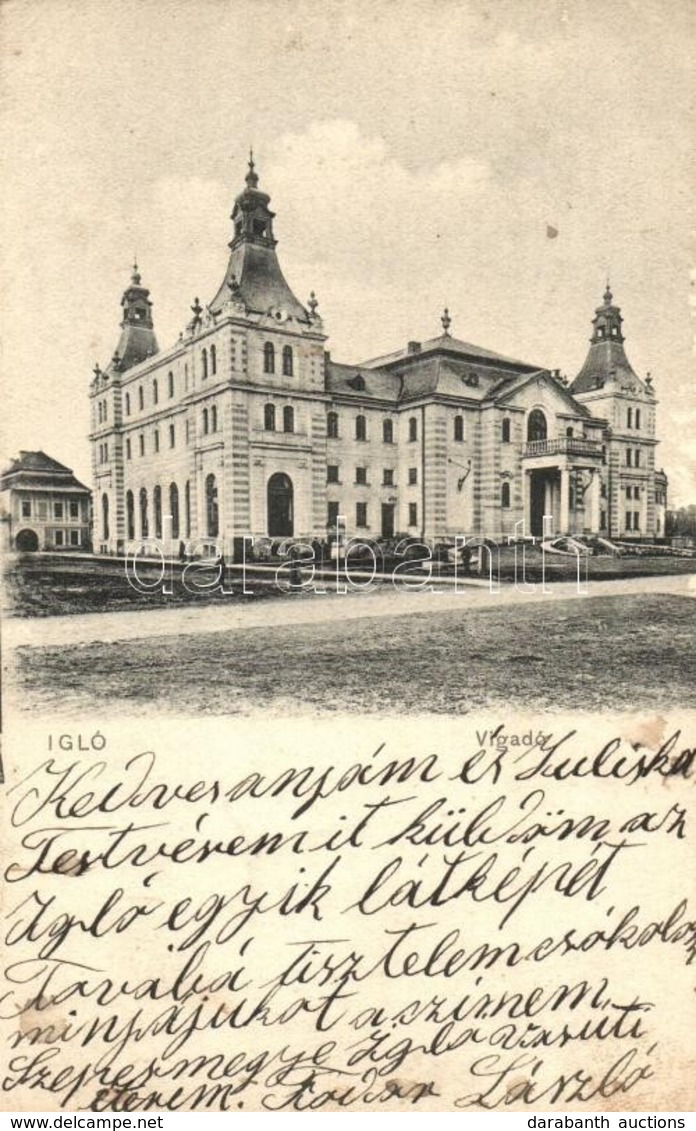 darabanth
IGLÓ
Vigadó
Kedves anyám és Juliska
Testvérem it küldöm az
Igló egyik látképét
Továbá tisztelem csókolo
minyájukot a szímem
Szepesmegye Igló vasuti
éterem. Fodor László
darabanth auctions